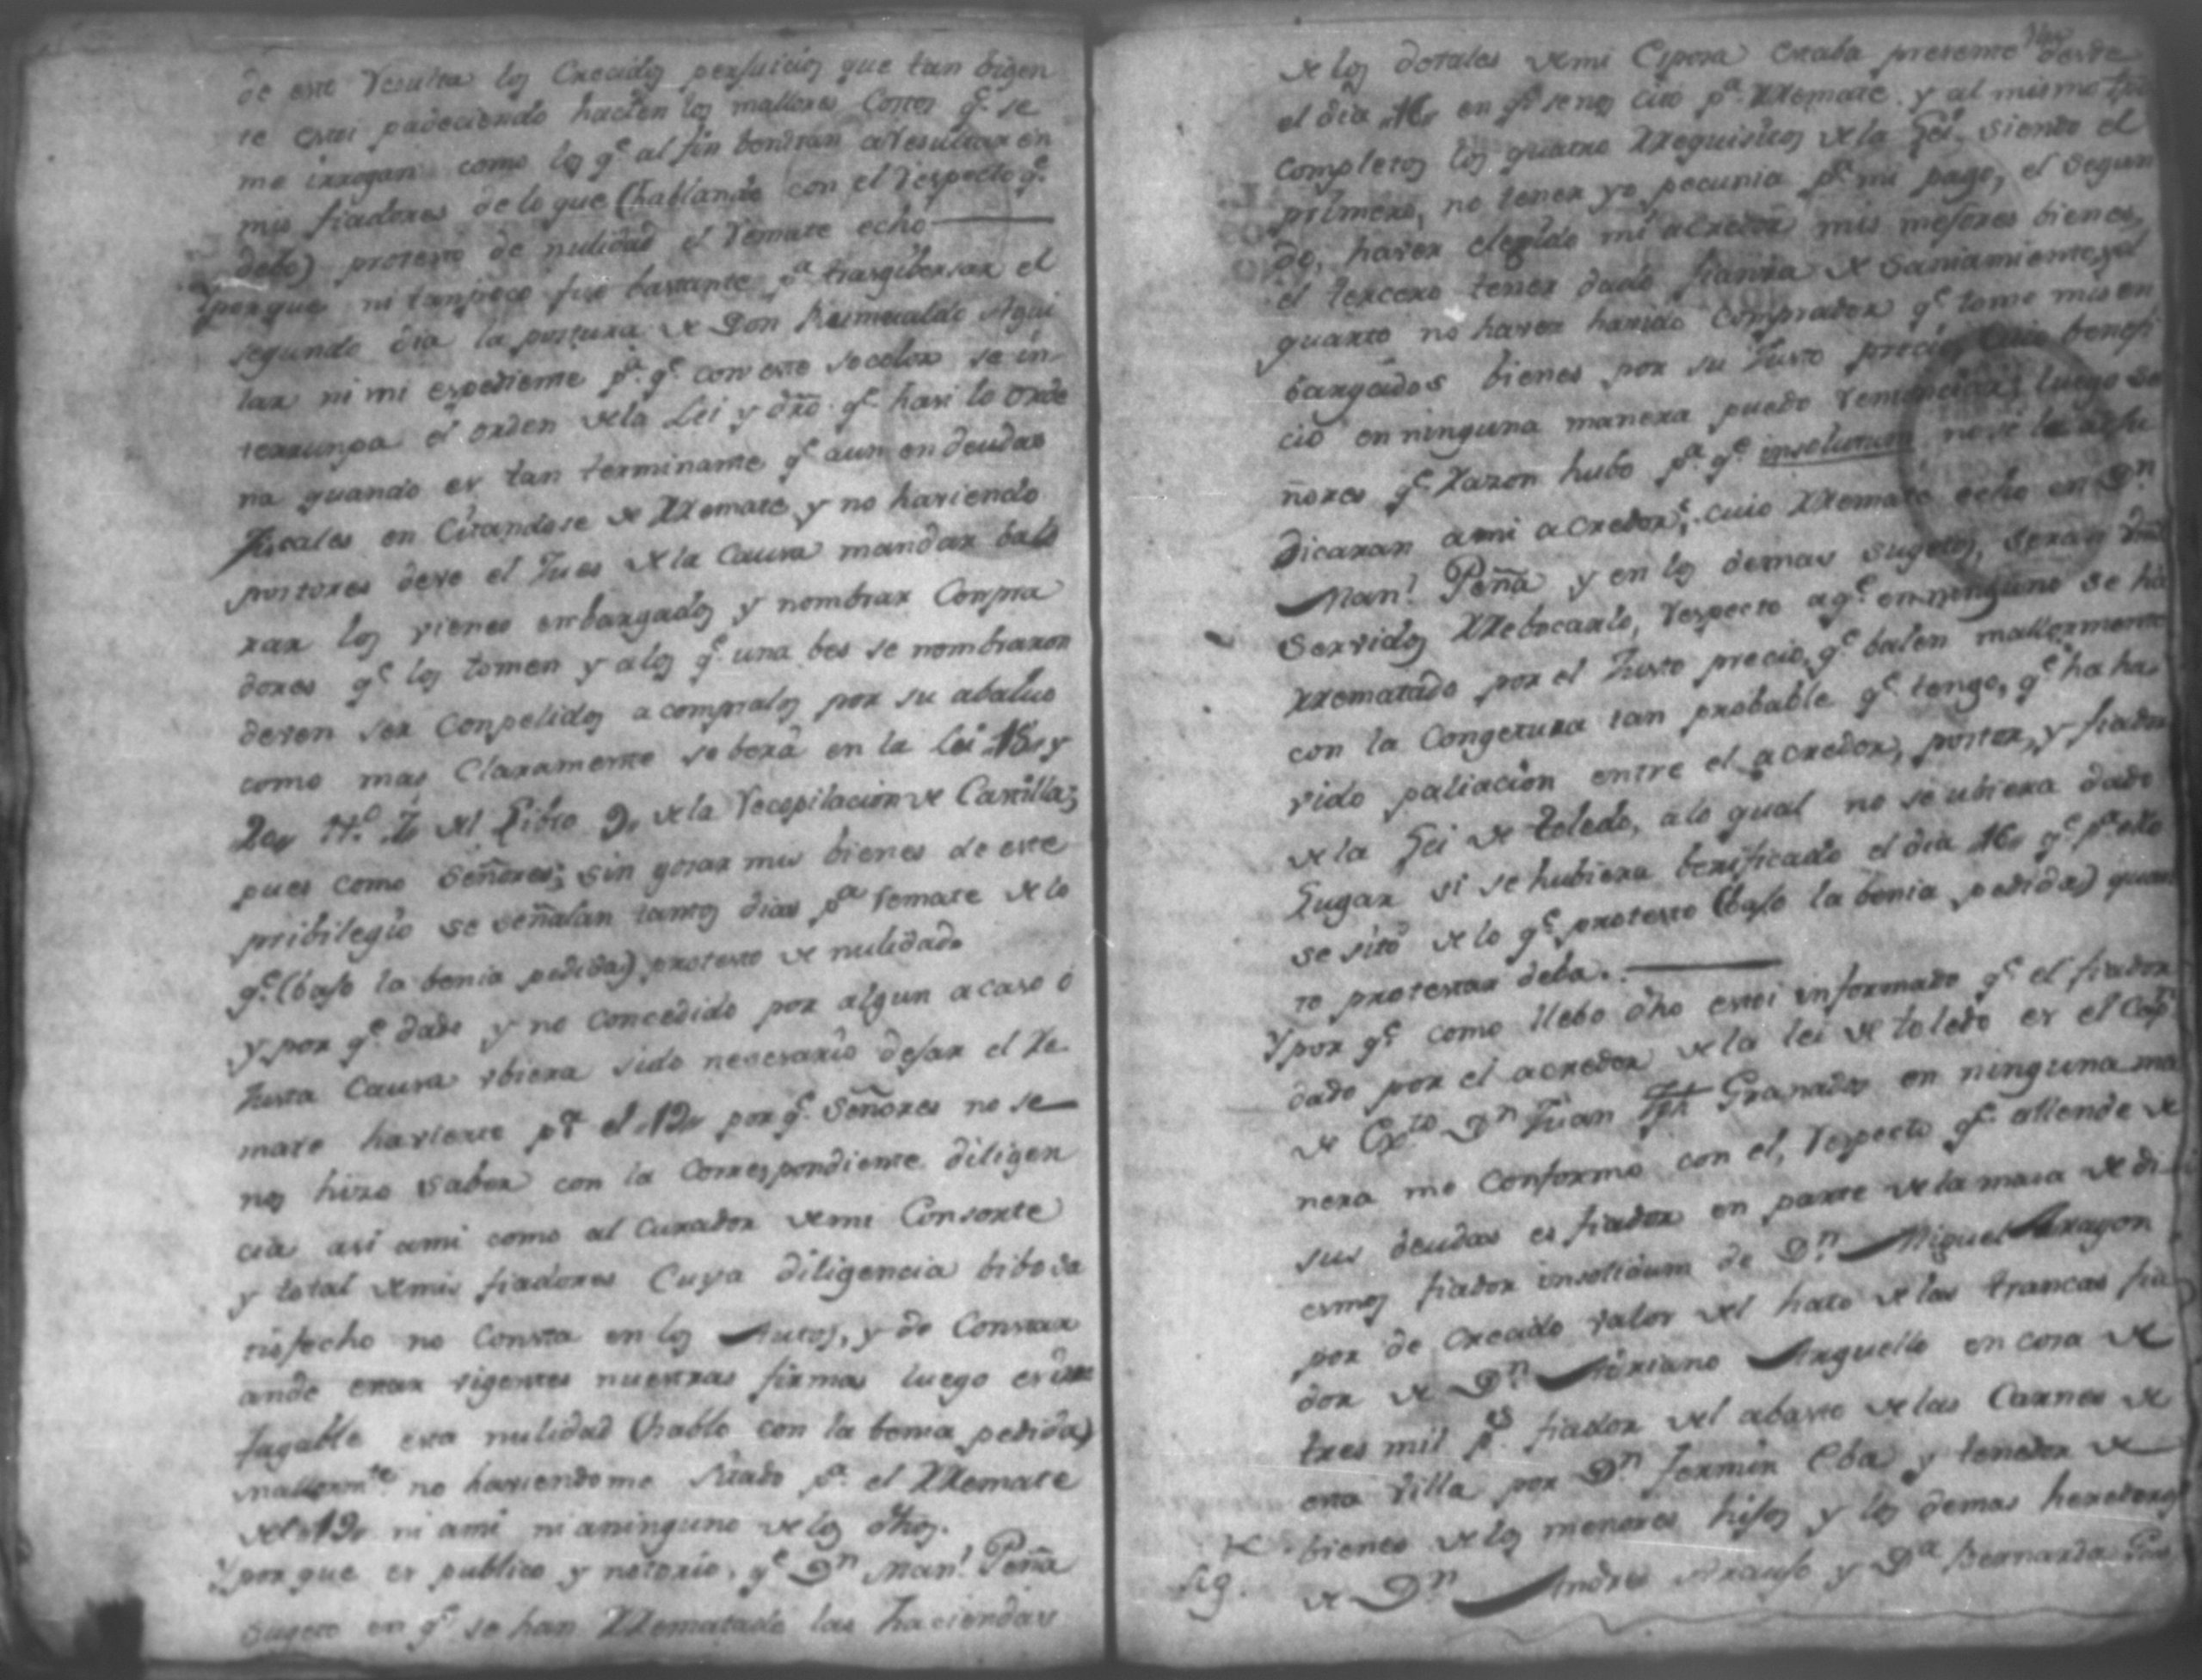 de este resulta los Crecidos perjuicios que tan bigen
te estoi padeciendo hacien los mallores Costos q.e se
me irrogan como los q.e al fin bendran a resultar en
mis fiadores de lo que (hablando con el respecto q.e
debo) protesto de nulidad el remate echo
Yporque ni tanpoco fue bastante p.a trasgibersar el
segundo dia la postura de Don Reimualdo Agui
lar ni mi espediente p.a q.e con este se color se in
terrunpa el orden dela Lei y dro. q.e hasi lo orde
na quando es tan terminante q.e aun en deudas
Fiscales en Citandose de RRemate y no haviendo
postores deve el Jues de la Causa mandar balo
rar los vienes enbargados y nombrar Conpra
dores q.e los tomen y alos q.e una bes se nombraron
deven ser Conpelidos a compralos por su abaluo
como mas Claramente se berá en la Lei 18, y
20, tt.o 7, del Libro 9, de la recopilacion de Castilla;
pues como Señores; sin gosar mis bienes de este
pribilegio se señalan tantos dias p.a remate de lo
q.e (bajo la benia pedida) protesto de nulidad.
y por q.e dado y no Concedido por algun acaso ó
Justa Causa ubiera sido necesario dejar el Re
mate haviente p.a el 19, por q.e Señores no se
nos hizo saber con la Correspondiente diligen
cia asi ami como al Curador de mi Consorte
y total de mis fiadores Cuya diligencia bibo sa
tisfecho no Consta en los Autos, y de Constar
ande estar vigentes nuestras firmas luego es inne
fagable esta nulidad (hablo con la benia pedida)
mallorm.te no haviendome sitado p.a el RRemate
del 19, ni ami ni aninguno de los dhos.
Yporque es publico y notorio, q.e D.n Man.l Peña
Sugeto en q.n se han RRematado las haciendas
de los dotales de mi Esposa estaba presente desde
el dia 16, en q.e se nos citó p.a RRemate y al mismo tpo
completos los quatro RRequisitos de la Lei. Siendo el
primero, no tener yo pecunia p.a mi pago, el segun
do, haver elegido mi acredor mis mejores bienes,
el tercero tener dado fianza de Saniamiento, y el
quarto no haver havido Comprador q.e tome mis en
bargados bienes por su Justo precio, Cuio benefi
cio en ninguna manera puedo renunciar; luego Se
ñores q.e Razon hubo p.a q.e insolutum no se le adju
dicaran ami acredor; cuio RRemate echo en D.n
Man.l Peña y en los demas sugetos, Seran Vms
Servidos RRebocarlo, respecto a q.e en ninguno se ha
RRematado por el Justo precio q.e balen mallormente
con la Congetura tan probable q.e tengo, q.e ha ha
vido paliacion entre el acredor, postor, y fiador
de la Lei de Toledo, a lo qual no se ubiera dado
Lugar si se hubiera berificado el dia 16, q.e p.a ello
se sitó de lo q.e protesto (bajo la benia pedida) quan
to protestar deba.
Y por q.e como llebo dho estoi informado q.e el fiador
dado por el acredor de la lei de toledo es el Cap.n
de Ex.to D.n Juan Jph Granados en ninguna ma
nera me Conformo con el, respecto q.e allende de
sus deudas es fiador en parte de la masa de di
esmos fiador insolidum de D.n Miguel Aragon
por de Crecido valor del hato de las trancas fia
dor de D.n Adriano Arguello en cosa de
tres mil p.s fiador del abasto de las Carnes de
esta Villa por D.n Fermin Oba y tenedor de
bienes de los menores hijos y los demas herederos
de D.n Andres Araujo y D.a Bernarda